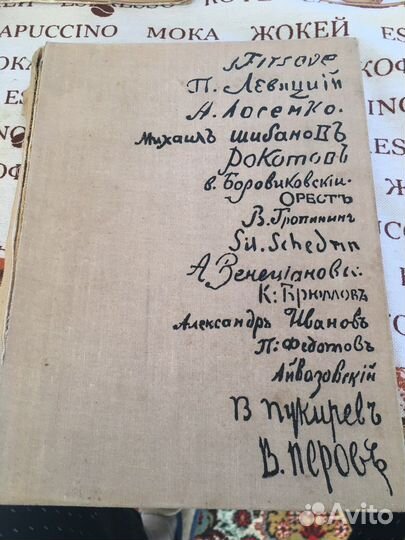 КОФ ЭСПРЕССО КОФЕ ES
CAPPUCCINO МОКА ЖОКЕЙ ESP
I Firsove
П. Левицкій
А. Лосенко.
Михаилъ шибановъ
Рокотовъ
В. Боровиковскій.
ОРЕСТЪ
В. Тропининъ
Sil. Schedrin
А Венеціановъ.
К: Брюлловъ
Александръ Ивановъ
П: Федотовъ
Айвазовскій
В пукиревъ
В. Перовъ
Avito